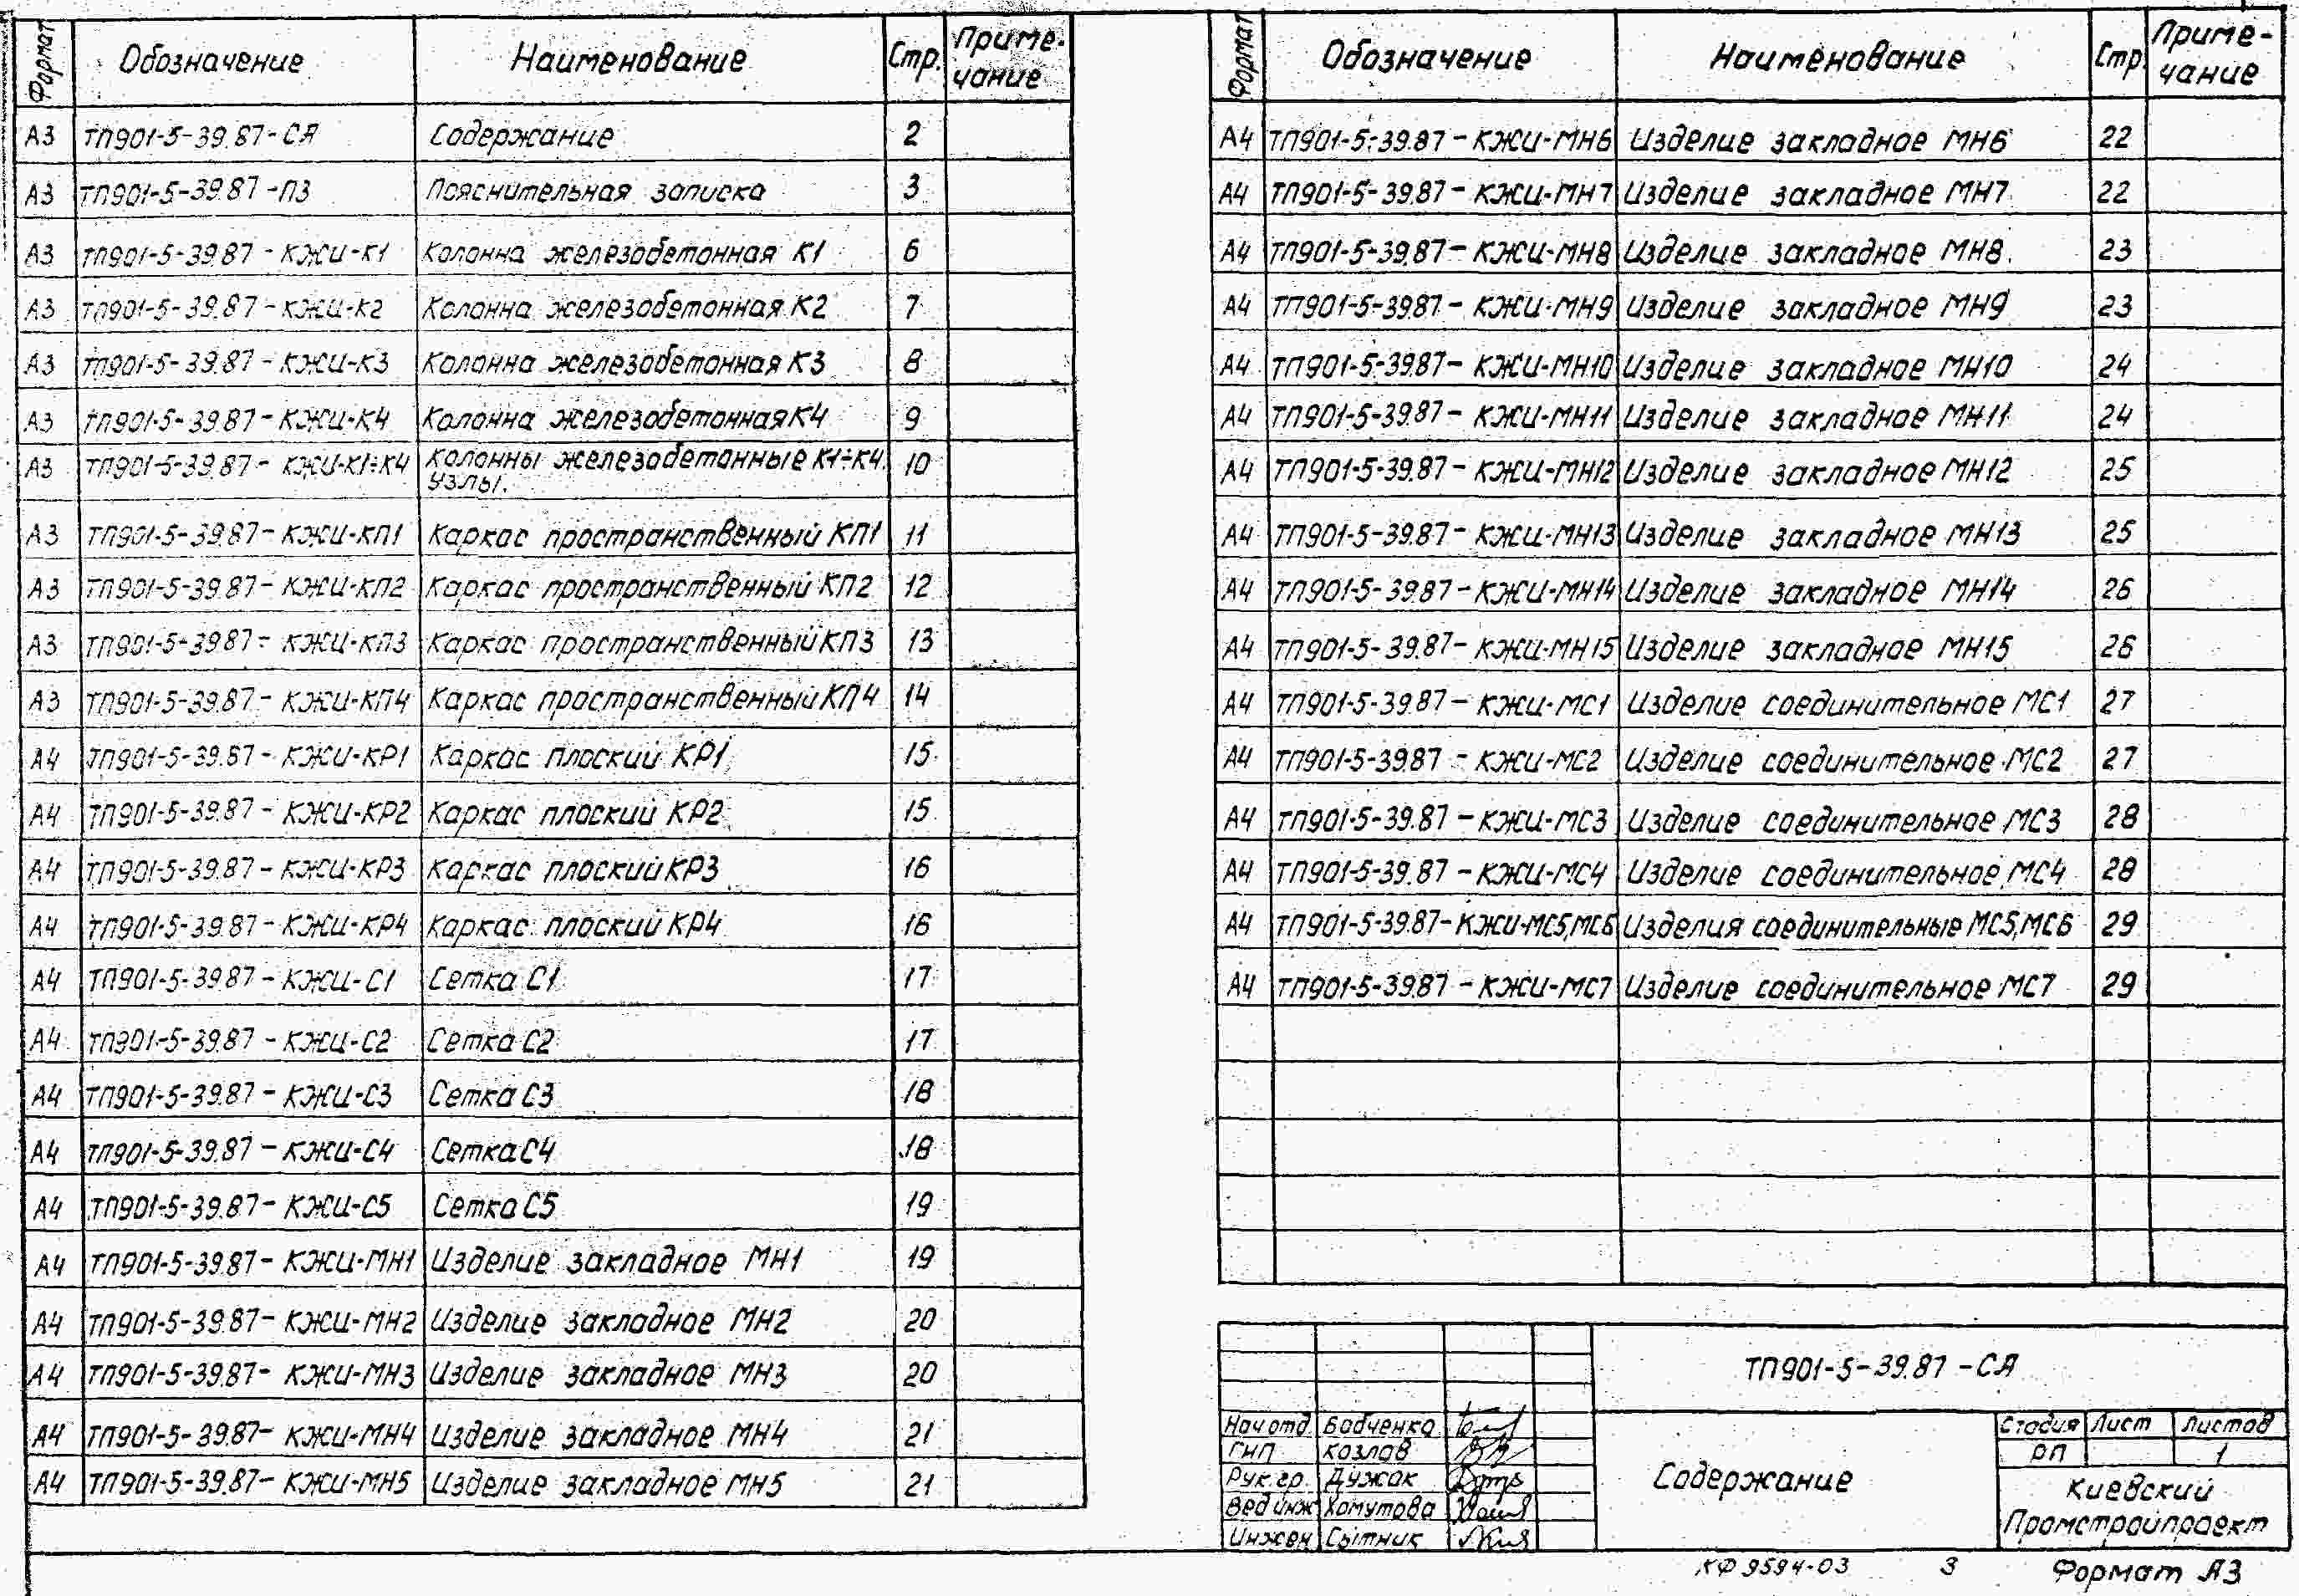 Формат Обозначение Наименование Стр. Приме-чание
А3 ТП901-5-39.87-СЯ Содержание 2
А3 ТП901-5-39.87-ПЗ Пояснительная записка 3
А3 ТП901-5-39.87-КЖИ-К1 Колонна железобетонная К1 6
А3 ТП901-5-39.87-КЖИ-К2 Колонна железобетонная К2 7
А3 ТП901-5-39.87-КЖИ-К3 Колонна железобетонная К3 8
А3 ТП901-5-39.87-КЖИ-К4 Колонна железобетонная К4 9
А3 ТП901-5-39.87-КЖИ-К1÷К4 Колонны железобетонные К1÷К4. 10
Узлы.
А3 ТП901-5-39.87-КЖИ-КП1 Каркас пространственный КП1 11
А3 ТП901-5-39.87-КЖИ-КП2 Каркас пространственный КП2 12
А3 ТП901-5-39.87-КЖИ-КП3 Каркас пространственный КП3 13
А3 ТП901-5-39.87-КЖИ-КП4 Каркас пространственный КП4 14
А4 ТП901-5-39.87-КЖИ-КР1 Каркас плоский КР1 15
А4 ТП901-5-39.87-КЖИ-КР2 Каркас плоский КР2 15
А4 ТП901-5-39.87-КЖИ-КР3 Каркас плоский КР3 16
А4 ТП901-5-39.87-КЖИ-КР4 Каркас плоский КР4 16
А4 ТП901-5-39.87-КЖИ-С1 Сетка С1 17
А4 ТП901-5-39.87-КЖИ-С2 Сетка С2 17
А4 ТП901-5-39.87-КЖИ-С3 Сетка С3 18
А4 ТП901-5-39.87-КЖИ-С4 Сетка С4 18
А4 ТП901-5-39.87-КЖИ-С5 Сетка С5 19
А4 ТП901-5-39.87-КЖИ-МН1 Изделие закладное МН1 19
А4 ТП901-5-39.87-КЖИ-МН2 Изделие закладное МН2 20
А4 ТП901-5-39.87-КЖИ-МН3 Изделие закладное МН3 20
А4 ТП901-5-39.87-КЖИ-МН4 Изделие закладное МН4 21
А4 ТП901-5-39.87-КЖИ-МН5 Изделие закладное МН5 21
Формат Обозначение Наименование Стр. Приме-чание
А4 ТП901-5-39.87-КЖИ-МН6 Изделие закладное МН6 22
А4 ТП901-5-39.87-КЖИ-МН7 Изделие закладное МН7 22
А4 ТП901-5-39.87-КЖИ-МН8 Изделие закладное МН8 23
А4 ТП901-5-39.87-КЖИ-МН9 Изделие закладное МН9 23
А4 ТП901-5-39.87-КЖИ-МН10 Изделие закладное МН10 24
А4 ТП901-5-39.87-КЖИ-МН11 Изделие закладное МН11 24
А4 ТП901-5-39.87-КЖИ-МН12 Изделие закладное МН12 25
А4 ТП901-5-39.87-КЖИ-МН13 Изделие закладное МН13 25
А4 ТП901-5-39.87-КЖИ-МН14 Изделие закладное МН14 26
А4 ТП901-5-39.87-КЖИ-МН15 Изделие закладное МН15 26
А4 ТП901-5-39.87-КЖИ-МС1 Изделие соединительное МС1 27
А4 ТП901-5-39.87-КЖИ-МС2 Изделие соединительное МС2 27
А4 ТП901-5-39.87-КЖИ-МС3 Изделие соединительное МС3 28
А4 ТП901-5-39.87-КЖИ-МС4 Изделие соединительное МС4 28
А4 ТП901-5-39.87-КЖИ-МС5,МС6 Изделия соединительные МС5,МС6 29
А4 ТП901-5-39.87-КЖИ-МС7 Изделие соединительное МС7 29
ТП901-5-39.87-СЯ
Нач отд Бабченко
ГИП Козлов
Рук.гр. Дужак
Вед инж Хомутова
Инжен Сытник
Содержание
Стадия Лист Листов
РП 1
Киевский
Промстройпроект
КФ 9594-03 3 Формат А3